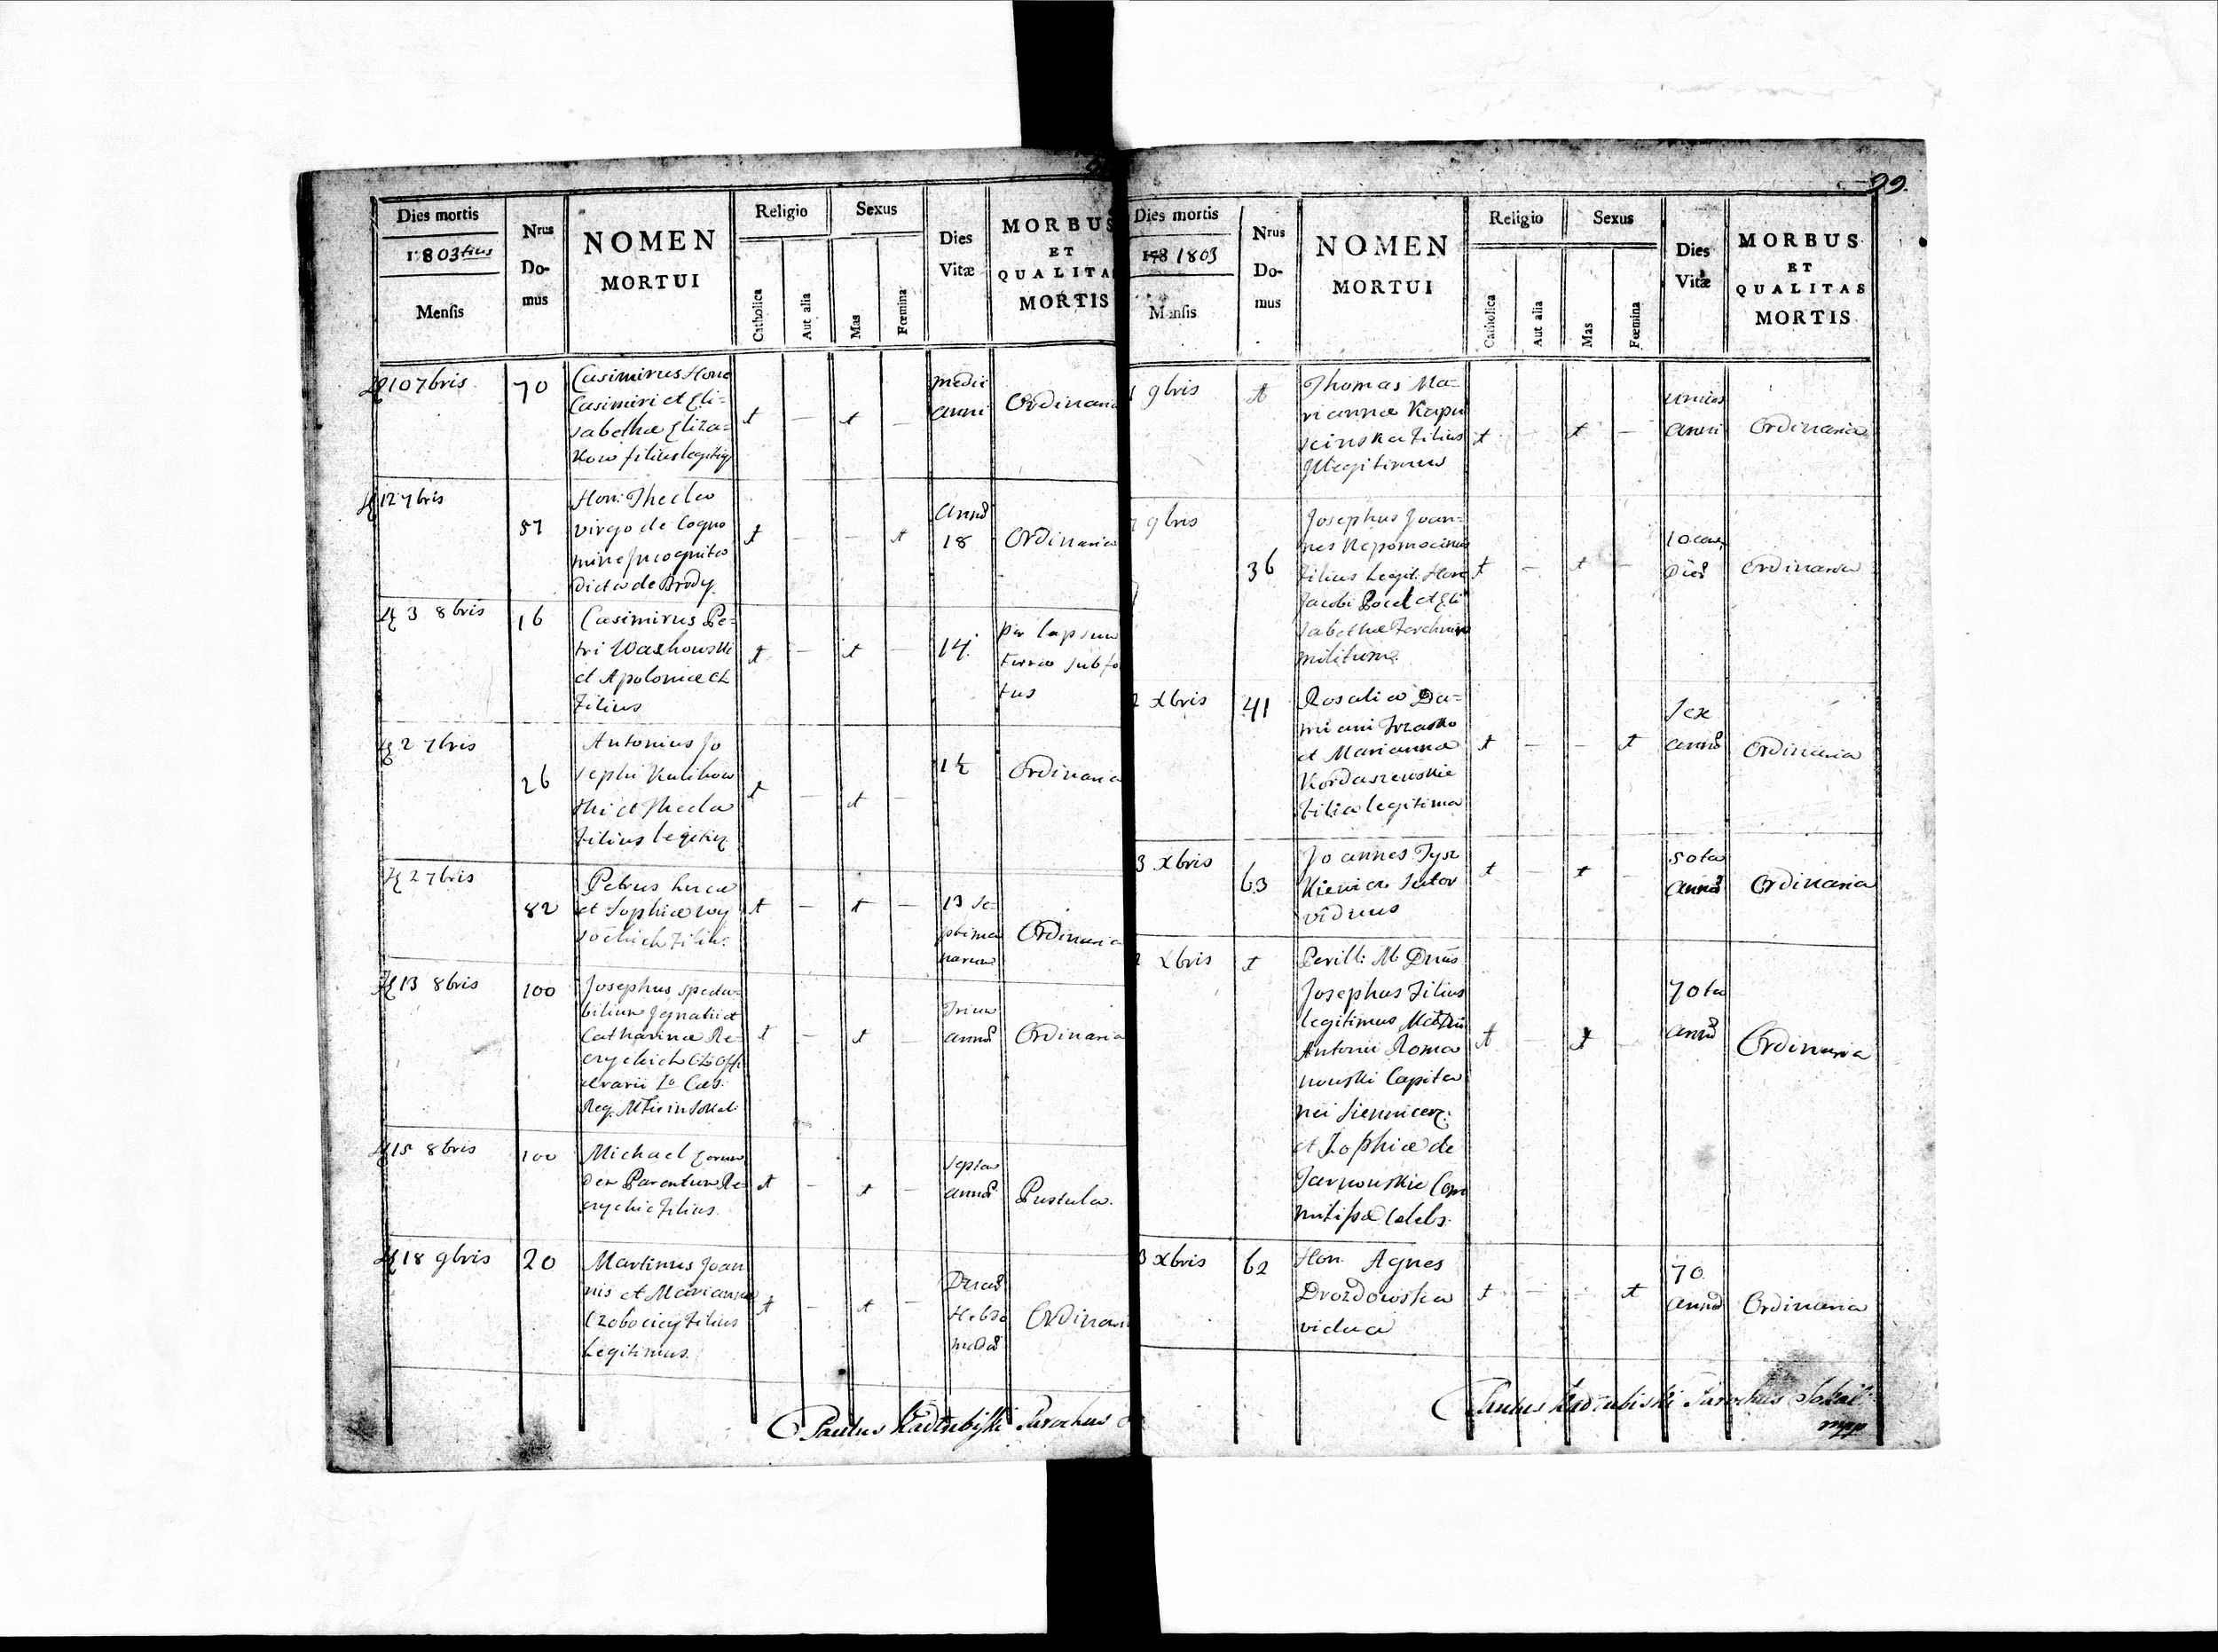 Dies mortis
1803tius
Mensis
Nrus
Do-
mus
NOMEN
MORTUI
Religio
Catholica
Aut alia
Sexus
Mas
Fœmina
Dies
Vitæ
MORBUS
ET
QUALITA
MORTIS
107bris
70
Casimirus Hone
Casimiri et Eli=
sabethæ Eliza=
filius legitim
t — t —
medii
anni
Ordinaria
127bris
57
Hon: Thecla
virgo de Cogno
mine Incognito
dicta de Brody
t — — t
annor
18
Ordinaria
3 8bris
16
Casimirus Pe=
tri Waskowski
et Apoloniæ
Filius
t — t —
14
per lapsum
terræ subfo
tus
2 7bris
26
Antonius Jo
sephi
et Thecla
Filius legitim
t — t —
1½
Ordinaria
27bris
82
Petrus Lucæ
et Sophiæ Wy
Filius
t — t —
13 Se=
ptima
narum
Ordinaria
13 8bris
100
Josephus specta=
bilium Ignatii et
Catharinæ Re=
Reg. in Sokal
t — t —
Trium
annor
Ordinaria
15 8bris
100
Michael eorun
dem Parentum Re=
Filius.
t — t —
septem
annor
Pustula.
18 9bris
20
Martinus Joan
nis et Mariannæ
Filius
Legitimus.
t — t —
Duar
Hebdo
madar
Ordinari
Paulus Parochus
99.
Dies mortis
178 1803
Mensis
Nrus
Do-
mus
NOMEN
MORTUI
Religio
Catholica
Aut alia
Sexus
Mas
Fœmina
Dies
Vitæ
MORBUS
ET
QUALITAS
MORTIS
9bris
t
Thomas Ma=
riannæ Kapu
scinska Filius
Illegitimus
t — t —
unius
anni
Ordinaria
9bris
36
Josephus Joan=
nes Nepomocenus
Filius Legit: Hon
Jacobi et Eli
sabethæ
militum
t — t —
10
Dier
Ordinaria
Xbris
41
Rosalia Da=
miani
et Marianna
Kordaszewskie
Filia legitima
t — — t
Sex
annor
Ordinaria
3 Xbris
63
Joannes Tysz
kiewicz Sutor
viduus
t — t —
50ta
annor
Ordinaria
Xbris
t
Perill: M: Dnus
Josephus Filius
legitimus
Antonii Roma
nowski Capita
nei
et Sophiæ de
Jarnowskie
t — t —
70ta
annor
Ordinaria
3 Xbris
62
Hon Agnes
Drozdowska
vidua
t — — t
70
annor
Ordinaria
Paulus Parochus Sokal:
mpp